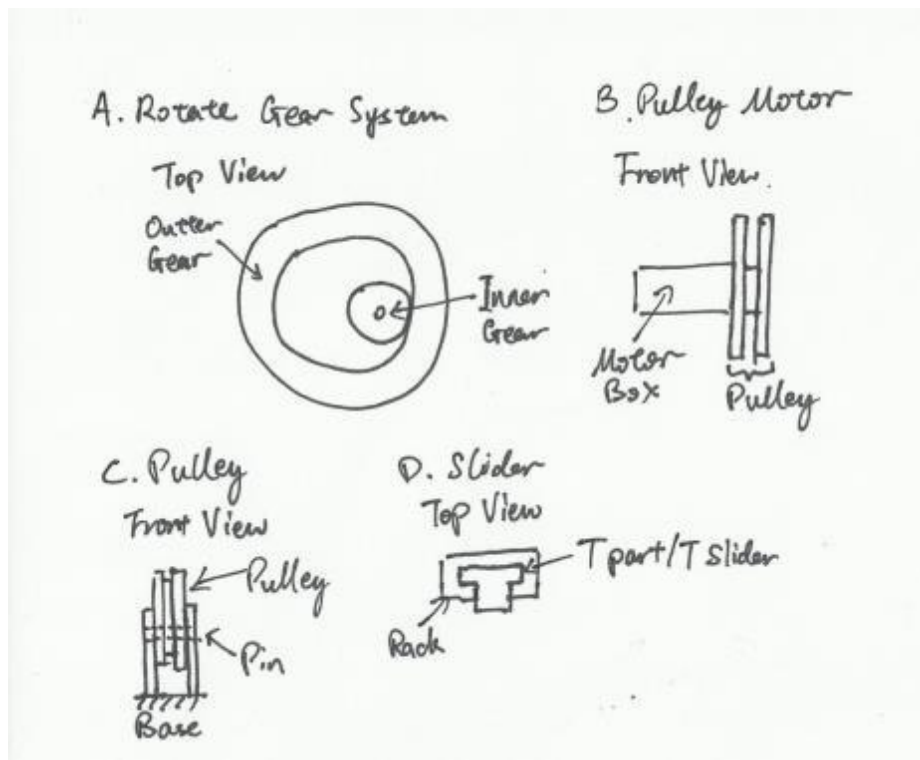 A. Rotate Gear System
Top View
Outter
Gear
Inner
Gear
B. Pulley Motor
Front View.
Motor
Box
Pulley
C. Pulley
Front View
Pulley
Pin
Base
D. Slider
Top View
T part/T Slider
Rack